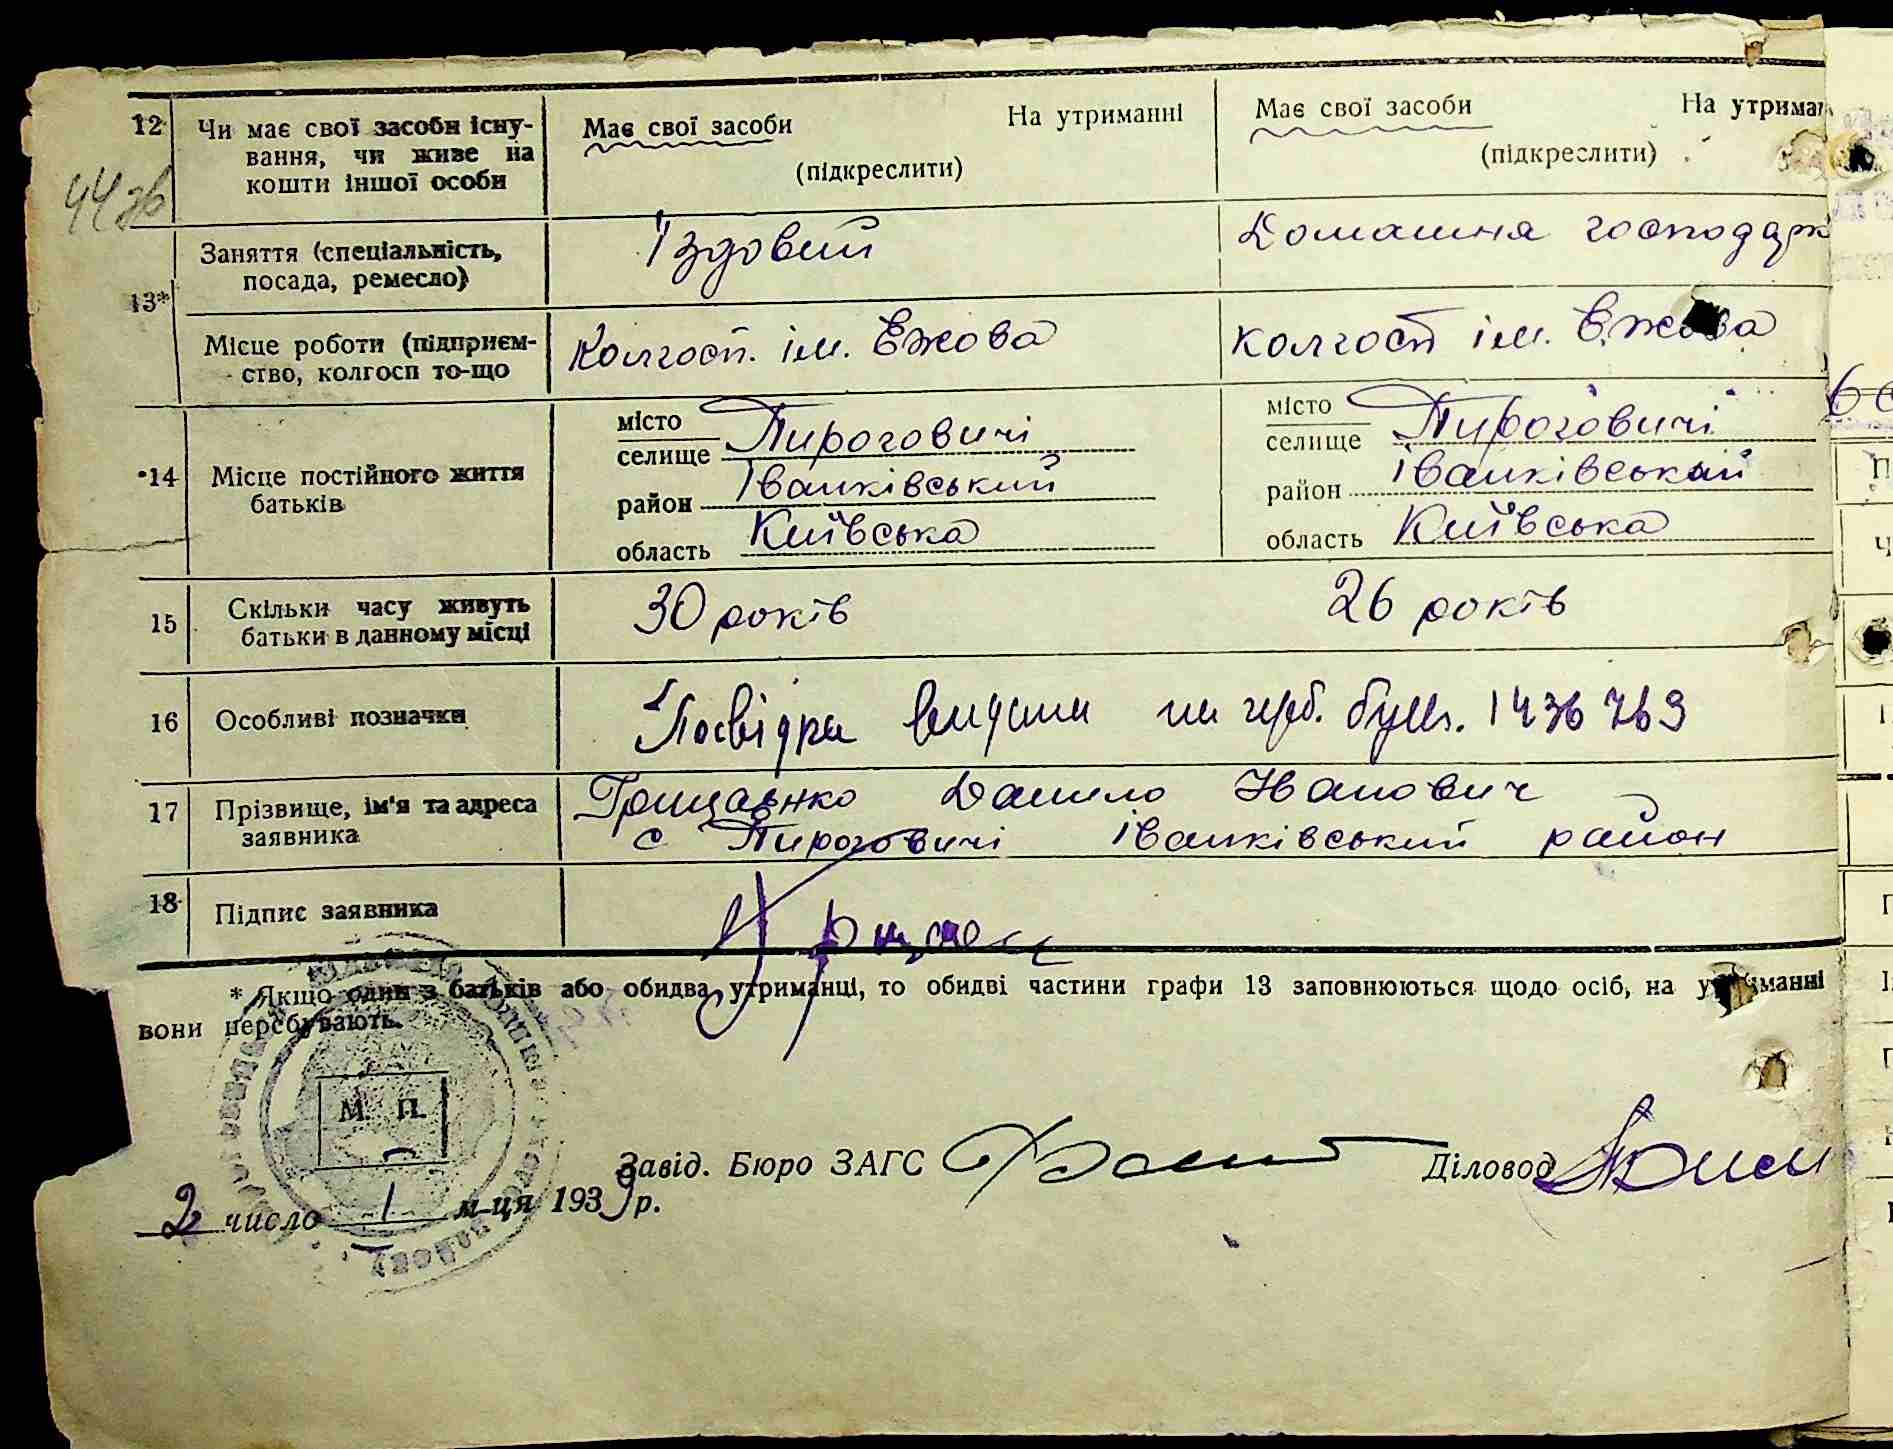 44 зв
12 Чи має свої засоби існу-
вання, чи живе на
кошти іншої особи
Має свої засоби На утриманні
(підкреслити)
Має свої засоби На утриман
(підкреслити)
13* Заняття (спеціальність,
посада, ремесло)
Їздовий
Домашня господарк
Місце роботи (підприєм-
ство, колгосп то-що
Колгосп. ім. Ежова
колгосп ім. Ежова
14 Місце постійного життя
батьків
місто
селище Пироговичі
район Іванківський
область Київська
місто
селище Пироговичі
район Іванківський
область Київська
15 Скільки часу живуть
батьки в данному місці
30 років
26 років
16 Особливі позначки
Посвідка видана на герб. бум. 1436769
17 Прізвище, ім'я та адреса
заявника
Грищенко Данило Иванович
с Пироговичі Іванківський район
18 Підпис заявника
* Якщо один з батьків або обидва утриманці, то обидві частини графи 13 заповнюються щодо осіб, на утриманні
вони перебувають.
М. П.
Завід. Бюро ЗАГС
Діловод
2 число 1 м-ця 1939 р.